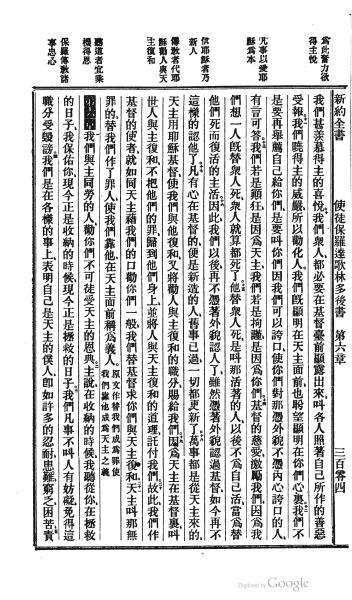 新約全書　使徒保羅達歌林多後書　第六章　三百零四
為此奮力欲
得主悅
凡事以愛耶
穌為本
信耶穌者乃
新人
傳教者代耶
穌勸人與天
主復和
聽道者宜乘
機得恩
保羅傳教諸
事忠心
我們甚羨慕得主的喜悅我們衆人都必要在基督臺前顯露出來叫各人照著自己所作的善惡
受報我們曉得主的威嚴所以勸化人我們既顯明在天主面前也盼望顯明在你們心裏我們不
是要再舉薦自己給你們是要叫你們因我們可以誇口使你們對那憑外貌不憑內心誇口的人
有言可答我們若是顛狂是因為天主我們若是拘謹是因為你們基督的慈愛激勵我們因為我
們想一人既替衆人死衆人就算都死了他替衆人死是叫那活著的人以後不為自己活當為替
他們死而復活的主活因此我們以後再不憑著外貌認人了雖然憑著外貌認過基督如今再不
這樣的認他了凡有心在基督的便是新造的人舊事已過一切都更新了萬事都是從天主來的
天主用耶穌基督使我們與他復和又將勸人與主復和的職分賜給我們因為天主在基督裏叫
世人與主復和不把他們的罪歸到他們身上並將人與天主復和的道理託付我們故此我們作
基督的使者就如同天主藉我們的口勸你們一般我們替基督求你們與天主復和天主叫那無
罪的替我們作了罪人使我們靠他在天主面前稱為義人原文作替我們成為罪使我們靠他成為天主之義
第六章我們與主同勞的人勸你們不可徒受天主的恩典主說在收納的時候我聽從你在拯救
的日子我保佑你現今正是收納的時候現今正是拯救的日子我們凡事不叫人有妨礙免得這
職分受毀謗我們是在各樣的事上表明自己是天主的僕人即如許多的忍耐患難窮乏困苦責
Digitized by Google